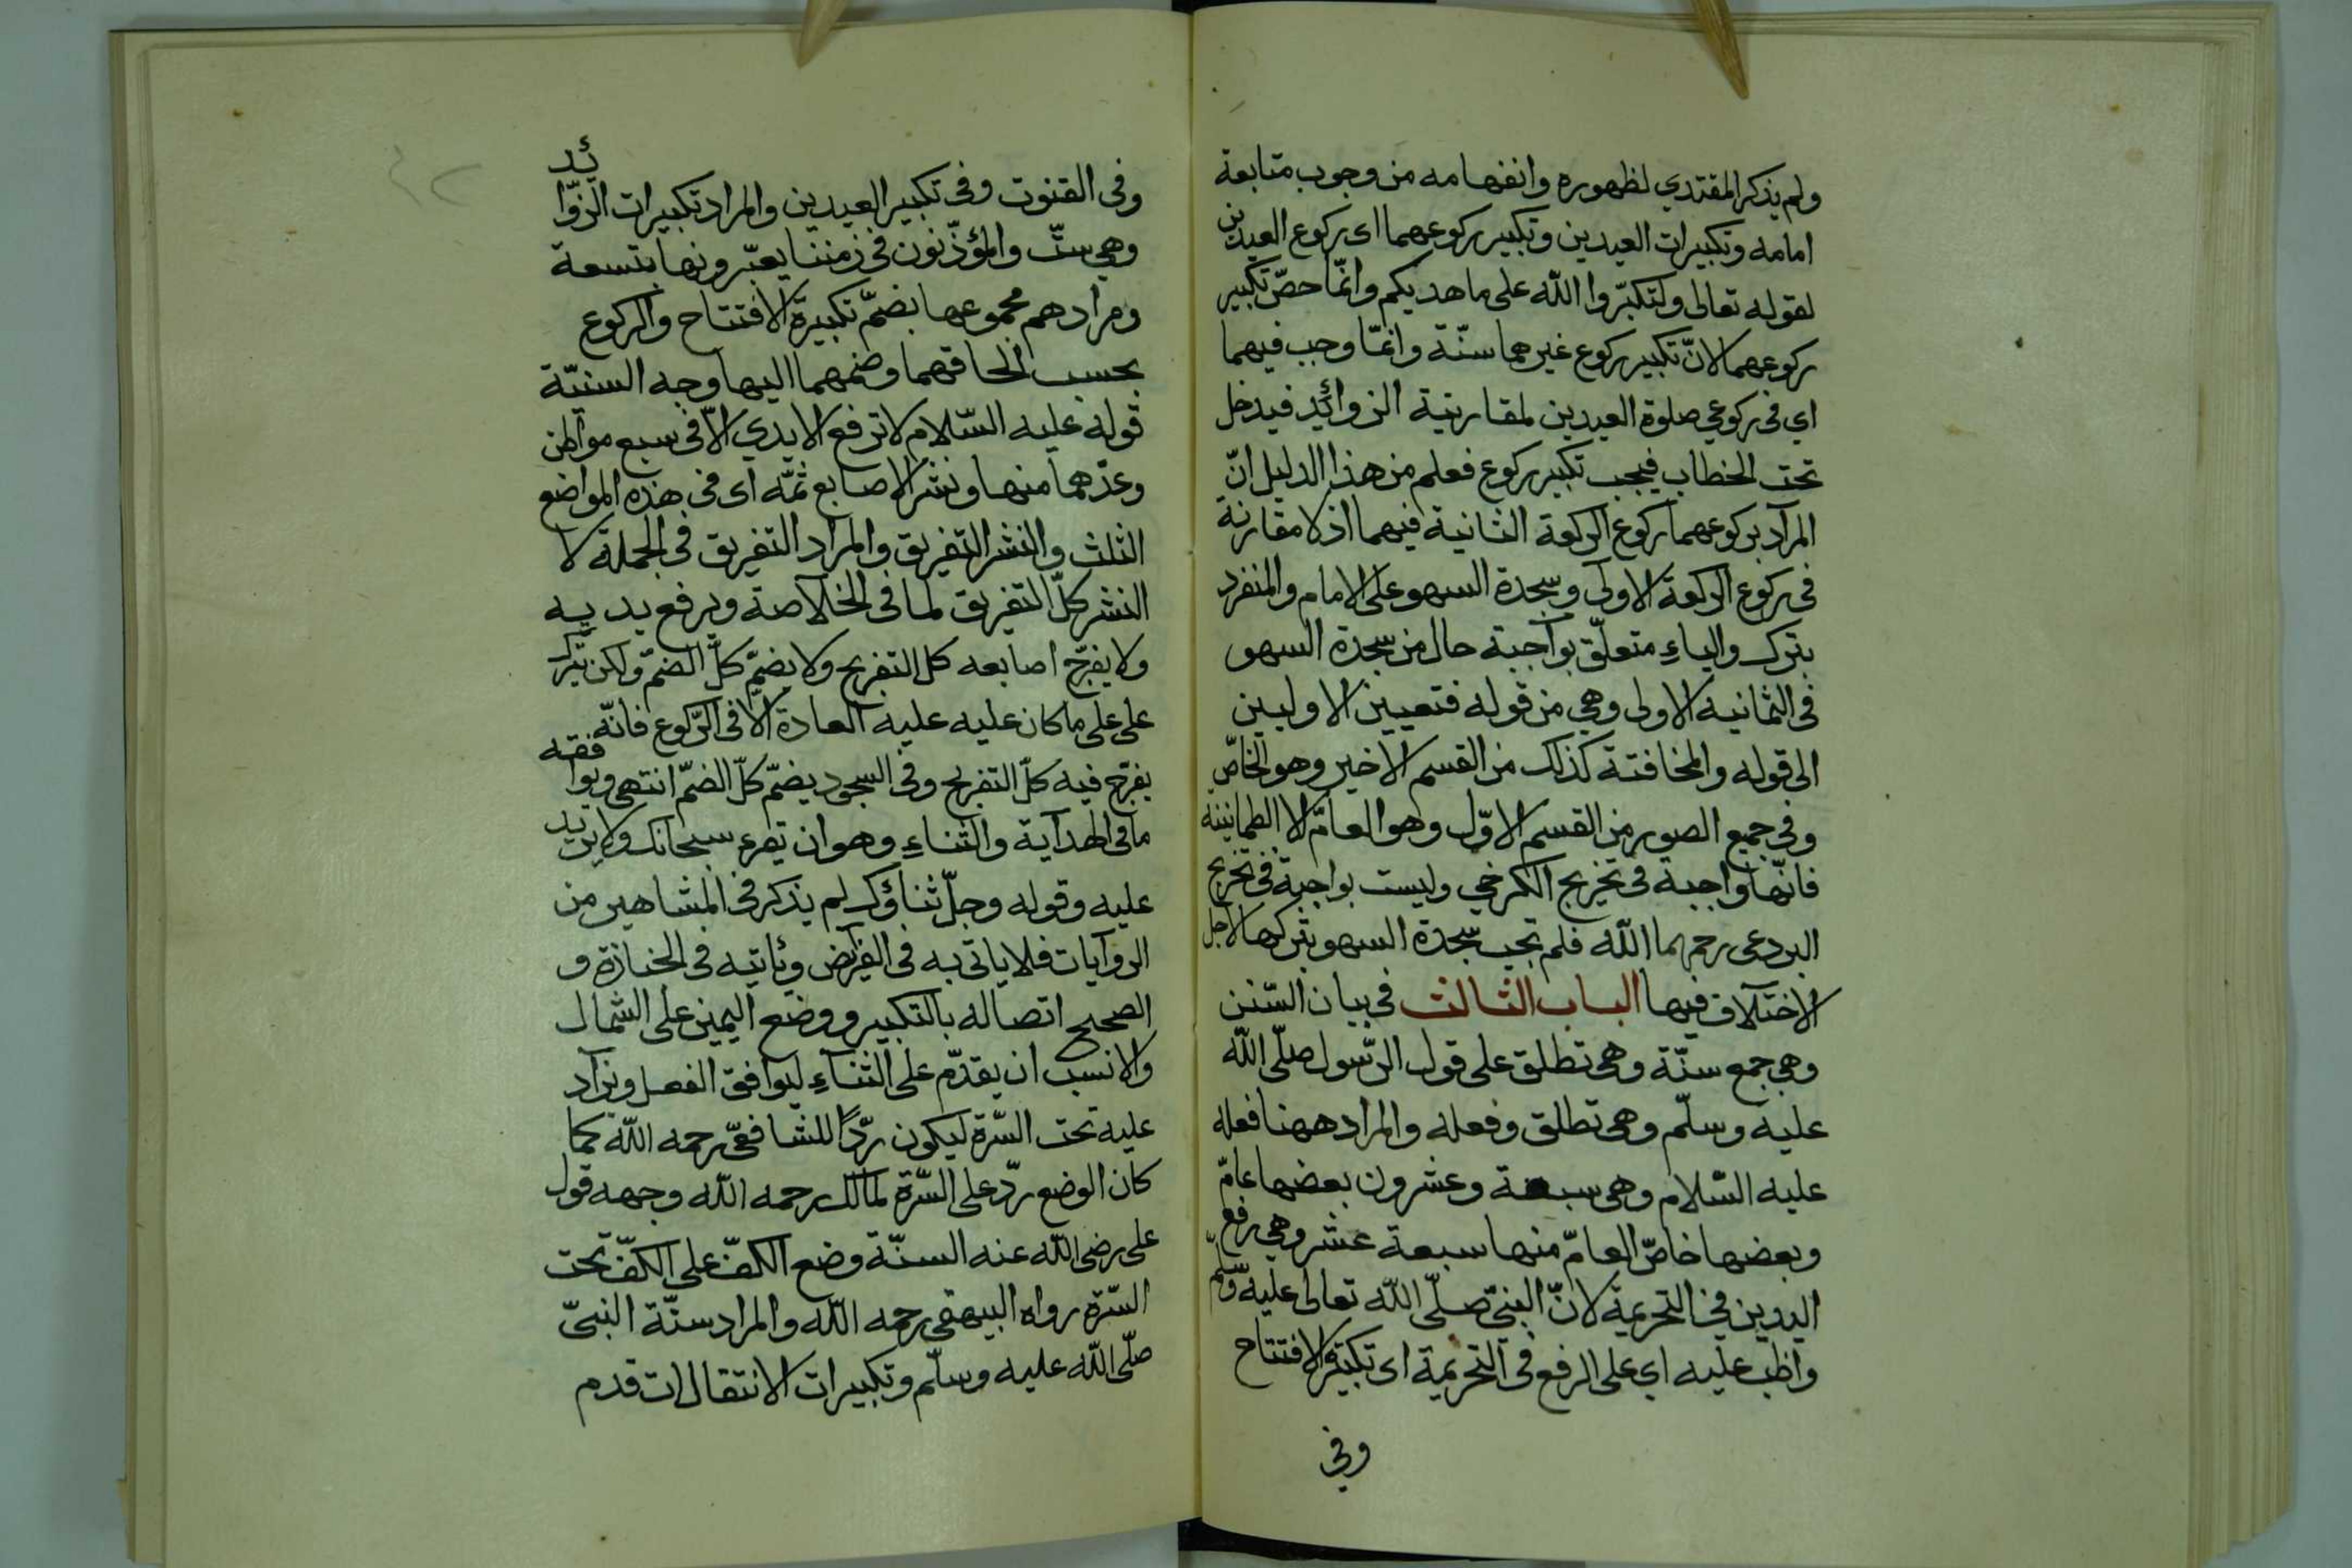 ولم يذكر المقتدي لظهوره وانفهامه من وجوب متابعة
امامه وتكبيرات العيدين وتكبير ركوعهما اى ركوع العيدين
لقوله تعالى ولتكبّروا الله على ما هديكم وانّما خصّ تكبير
ركوعهما لانّ تكبير ركوع غيرهما سنّة وانّما وجب فيهما
اي في ركوعي صلوة العيدين لمقارنية الزوائد فيدخل
تحت الخطاب فيجب تكبير ركوع فعلم من هذا الدليل انّ
المراد بركوعهما ركوع الركعة الثانية فيهما اذ لا مقارنة
في ركوع الركعة الاولى وسجدة السهو على الامام والمنفرد
بترك والباء متعلّق بواجبة حال من سجدة السهو
في الثمانية الاولى وهي من قوله فتعيين الاوليين
الى قوله والمخافتة كذلك من القسم الاخير وهو الخاصّ
وفي جميع الصور من القسم الاوّل وهو العامّ الا الطمانينة
فانّها واجبة في تخريج الكرخي وليست بواجبة في تخريج
البردعى رحمهما الله فلم تجب سجدة السهو بتركها لاجل
الاختلاف فيها الباب الثالث في بيان السّنن
وهي جمع سنّة وهى تطلق على قول الرّسول صلّى الله
عليه وسلّم وهى تطلق وفعله والمراد ههنا فعله
عليه السّلام وهى سبعة وعشرون بعضها عامّ
وبعضها خاصّ العامّ منها سبعة عشر وهي رفع
اليدين في التحريمة لانّ النبيّ صلّى الله تعالى عليه وسلّم
واظب عليه اي على الرفع في التحريمة اى تكبيرة الافتتاح
وفي
وفى القنوت وفى تكبير العيدين والمراد تكبيرات الزّوائد
وهي ستّ والمؤذّنون في زمننا يعبّرونها بتسعة
ومرادهم مجموعها بضمّ تكبيرة الافتتاح والركوع
بحسب الحاقهما وضمهما اليها وجه السنيّة
قوله عليه السّلام لا ترفع الايدي الّا في سبع مواطن
وعدّهما منها ونشر الاصابع ثمّه اى في هذه المواضع
الثلث والنشر التفريق والمراد التفريق في الجملة لا
النشر كلّ التفريق لما في الخلاصة ويرفع يديه
ولا يفرّج اصابعه كل التفريج ولا يضمّ كلّ الضمّ ولكن يترك
على على ما كان عليه عليه العادة الّا في الرّكوع فانّه
يفرّج فيه كلّ التفريج وفى السجود يضمّ كلّ الضمّ انتهى ويوافقه
ما في الهداية والثناء وهو ان تقرء سبحانك ولا يزيد
عليه وقوله وجلّ ثناؤك لم يذكر في المشاهير من
الروايات فلا ياتى به في الفرائض ويأتيه في الجنازة و
الصحيح اتصاله بالتكبير ووضع اليمين على الشمال
والانسب ان يقدّم على الثناء ليوافق الفعل ويزاد
عليه تحت السّرة ليكون ردّا للشافعيّ رحمه الله كما
كان الوضع ردّ على السّرّة لمالك رحمه الله وجهه قول
على رضى الله عنه السنّة وضع الكفّ على الكفّ تحت
السّرة رواه البيهقي رحمه الله والمراد سنّة النبيّ
صلّى الله عليه وسلّم وتكبيرات الانتقالات قدم